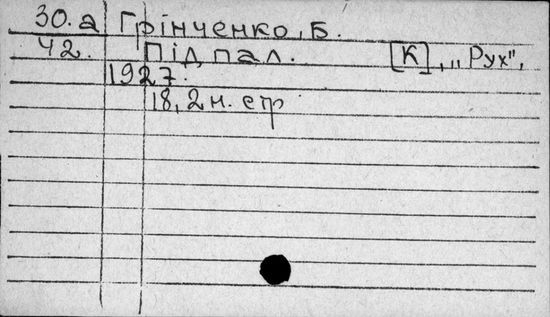 30.a Грінченко, Б.
42. Підпал. [К], „Рух",
1927.
18, 2 н. стр